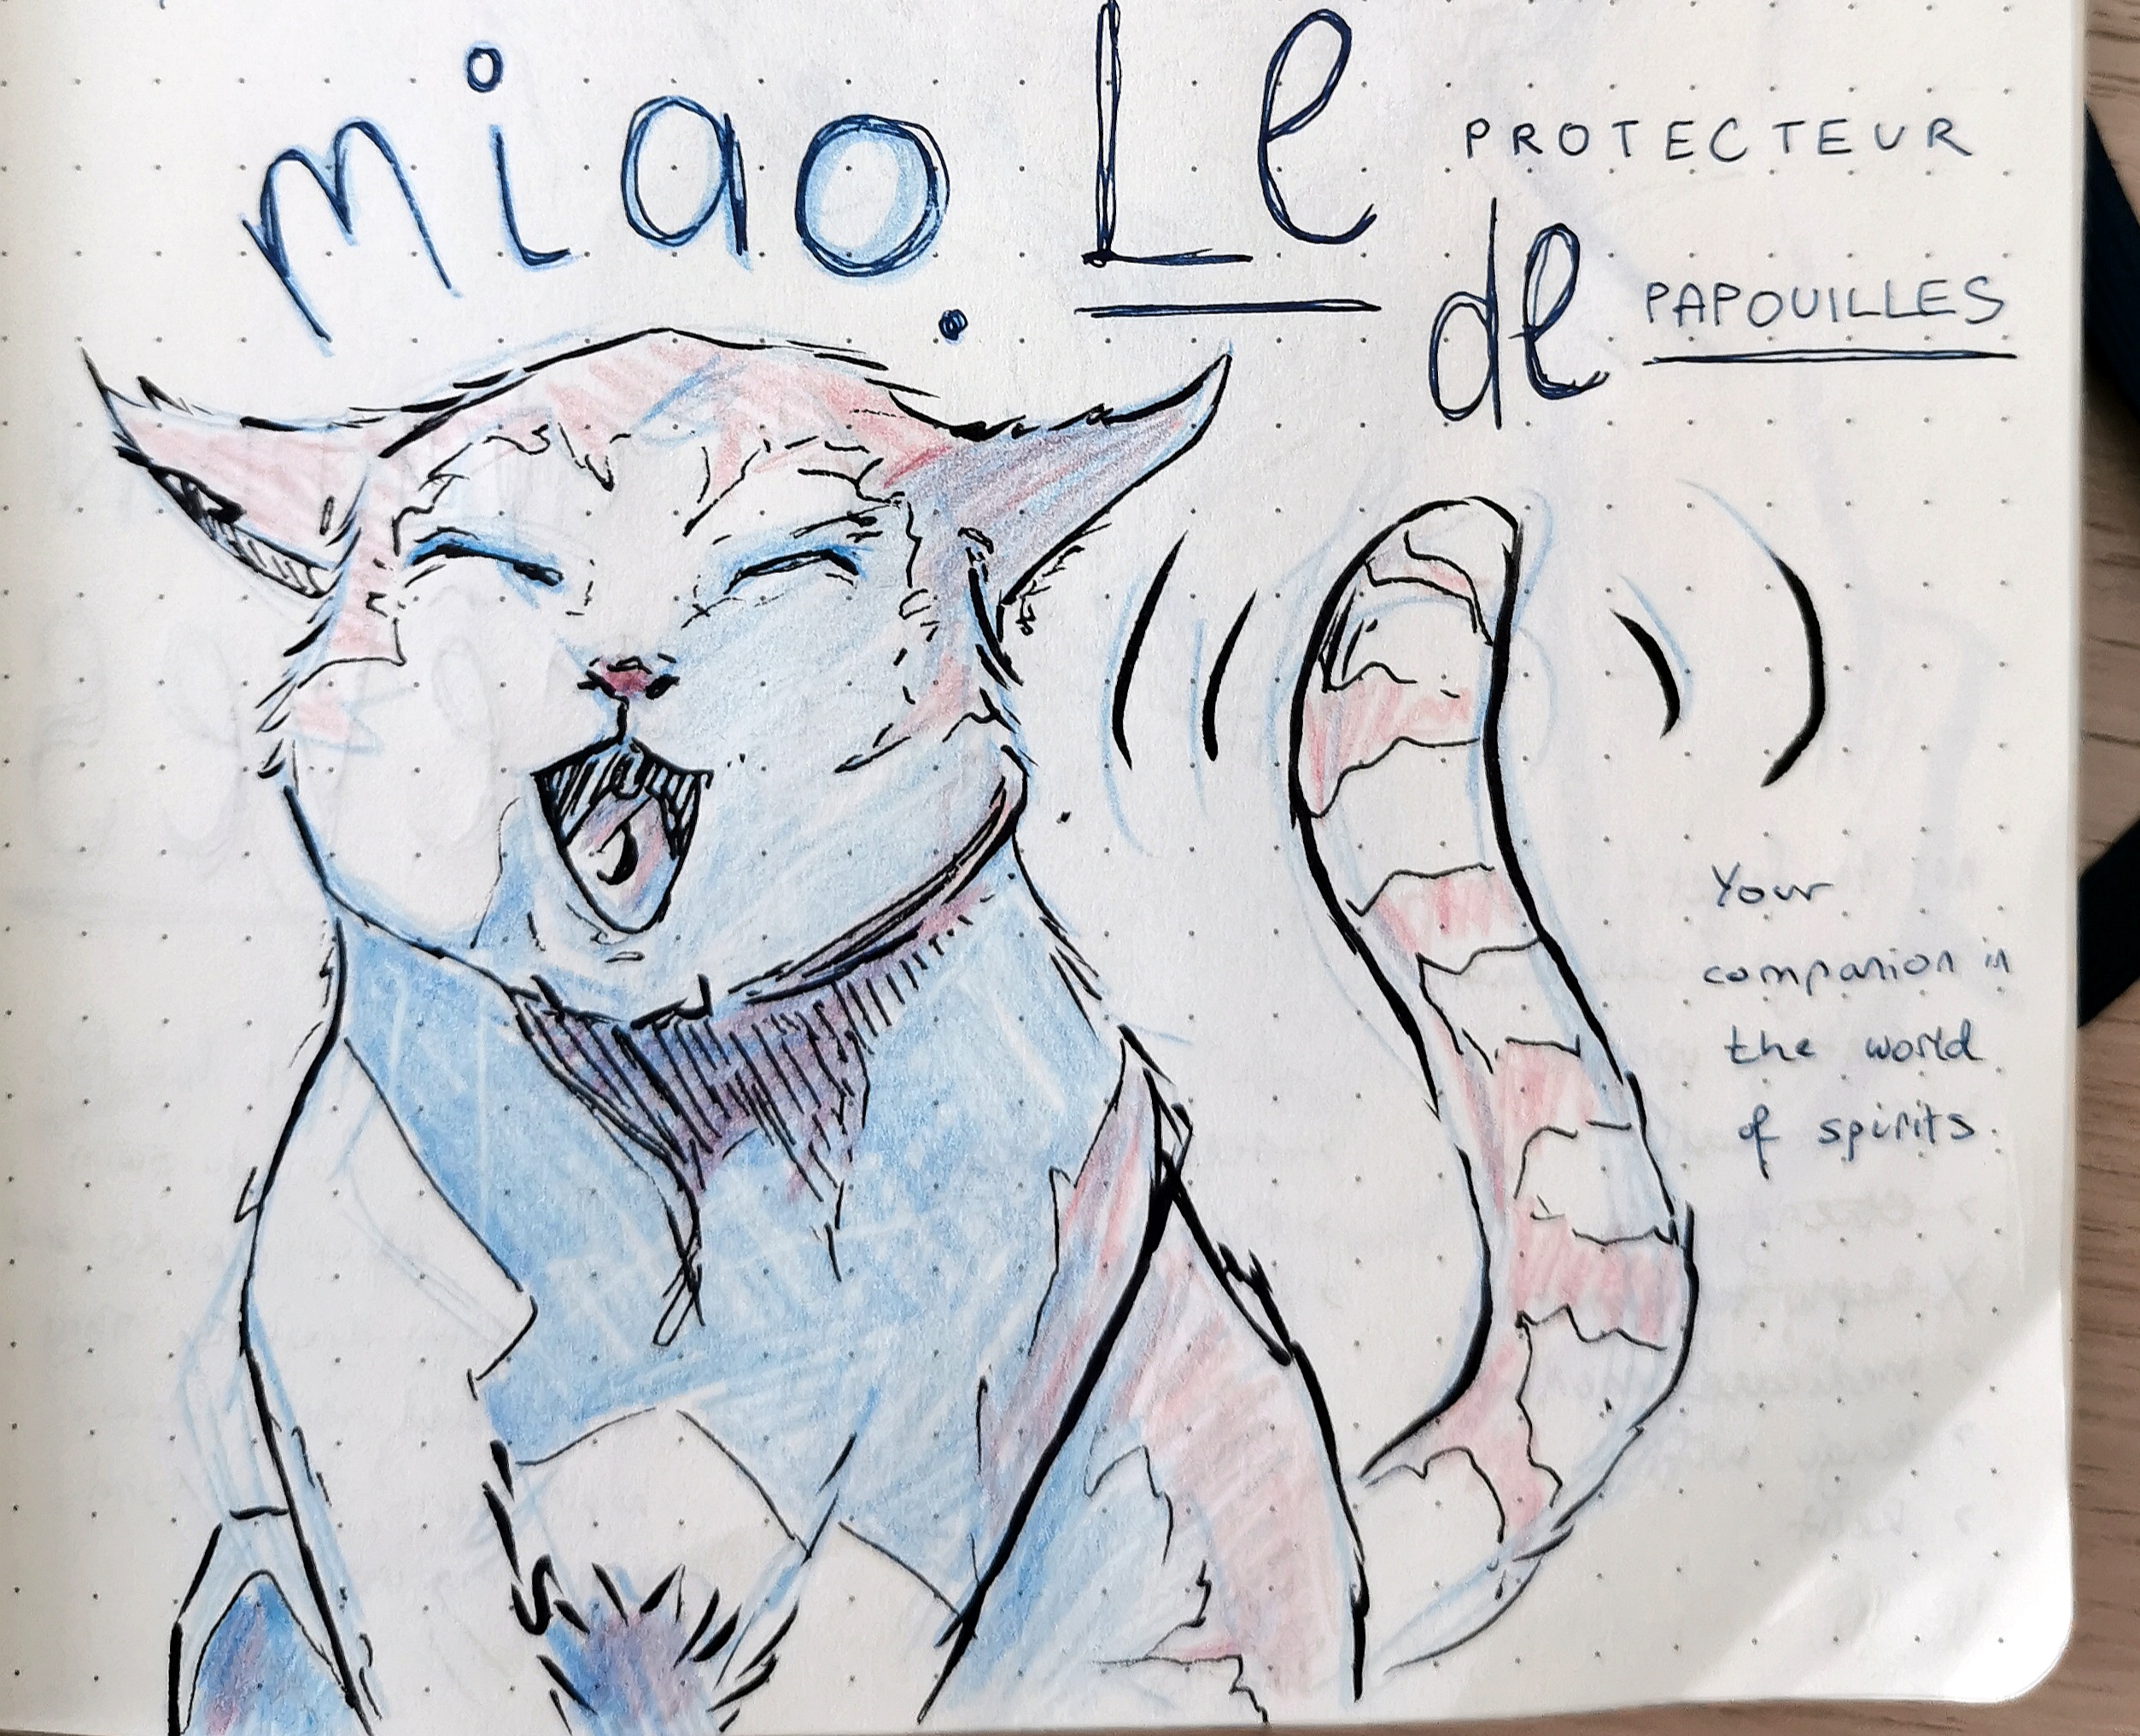 miao. Le PROTECTEUR
de PAPOUILLES
Your
companion in
the world
of spirits.